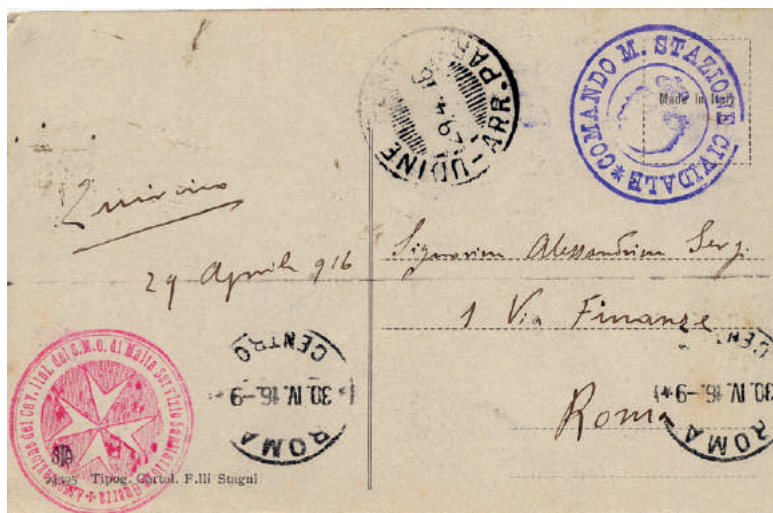 COMANDO M. STAZIONE CIVIDALE *
Made in Italy
UDINE - ARR. PAR
29.4.16
29 Aprile 916
Signorina Alessandrina Sergi
1 Via Finanze
Roma
ROMA CENTRO
30.IV.16.-9
ROMA CENTRO
30.IV.16.-9 *)
Associazione dei Cav. Ital. del S.M.O. di Malta Servizio Sanitario Guerra
24395 Tipog. Cartol. F.lli Stagni